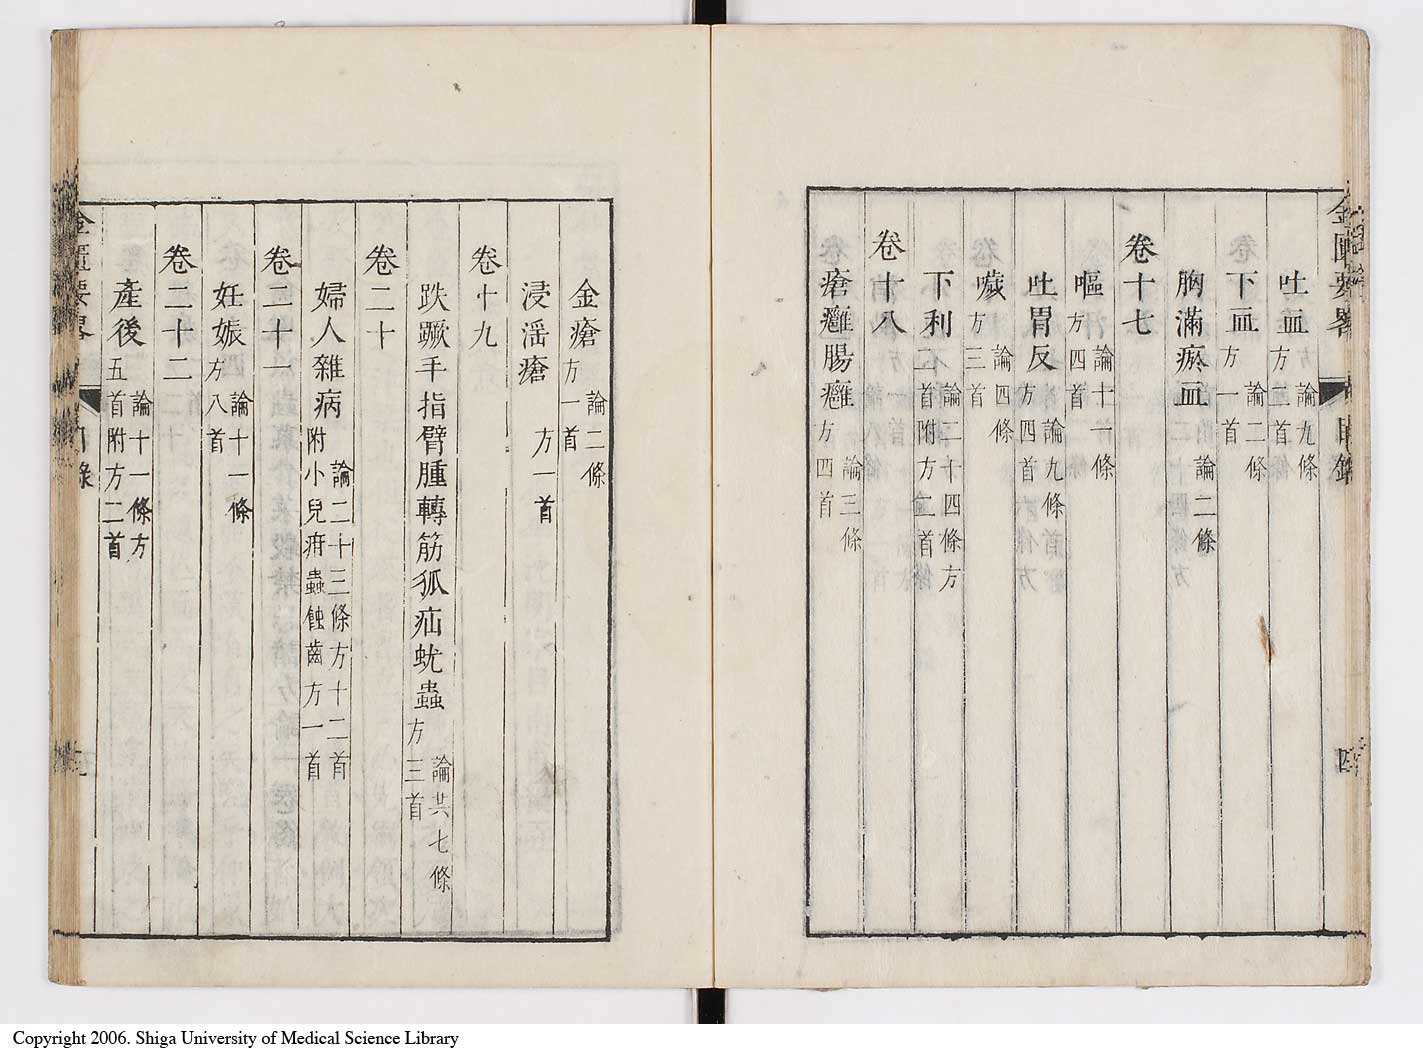 金匱要畧 目錄 四
吐血 論九條 方三首
下血 論二條 方一首
胸滿瘀血 論二條
卷十七
嘔 論十一條 方四首
吐胃反 論九條 方四首
噦 論四條 方三首
下利 論二十四條方二首附方二首
卷十八
瘡癰腸癰 論三條 方四首
金瘡 論二條 方一首
浸淫瘡 方一首
卷十九
跌蹶手指臂腫轉筋狐疝蚘蟲 論共七條 方三首
卷二十
婦人雜病 論二十三條方十二首附小兒疳蟲蝕齒方一首
卷二十一
妊娠 論十一條 方八首
卷二十二
產後 論十一條方五首附方二首
金匱要畧 目錄
Copyright 2006. Shiga University of Medical Science Library